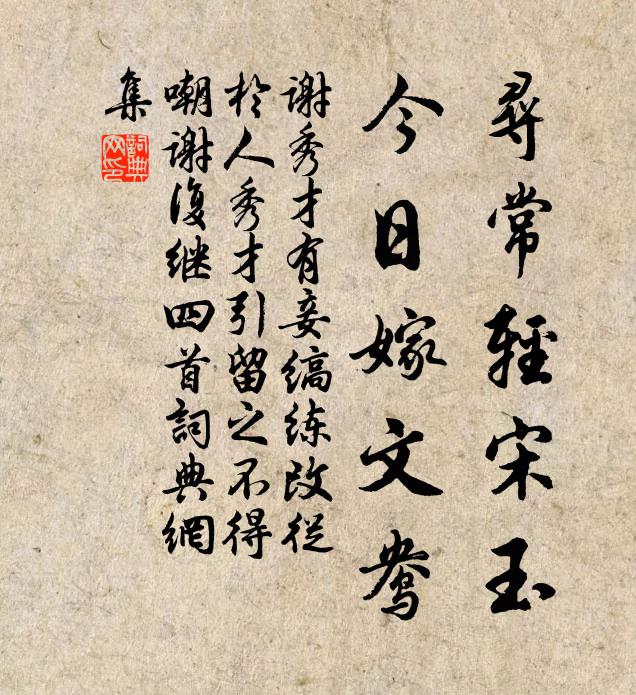 尋常輕宋玉
今日嫁文鴦
謝秀才有妾縞练改從
於人秀才引留之不得
嘲謝復继四首詞典網
集
詞典網印